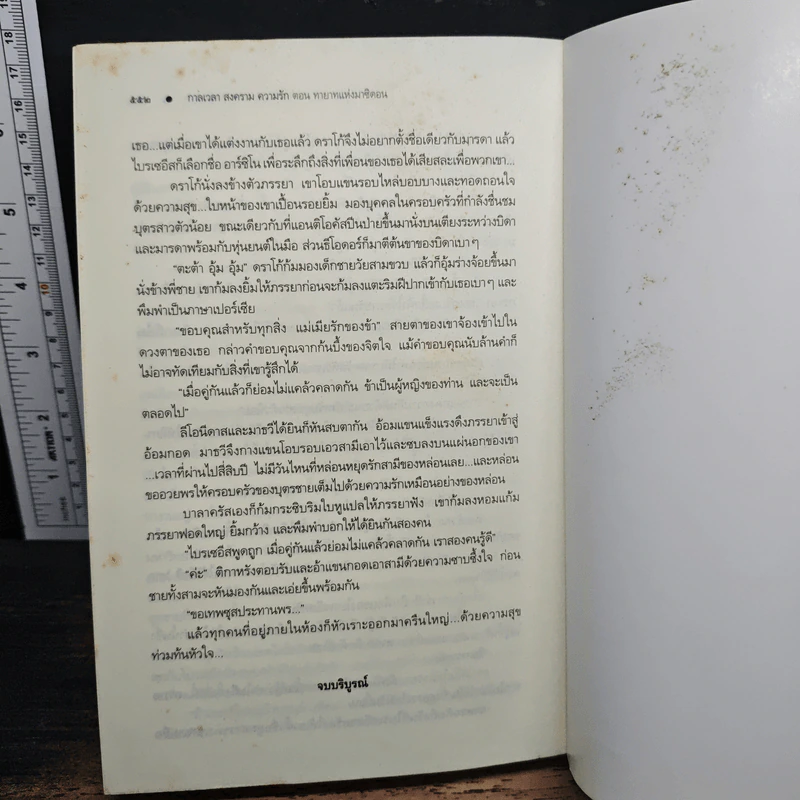 ๕๕๒ ● กาลเวลา สงคราม ความรัก ตอน ทายาทแห่งมาซิดอน
เธอ...แต่เมื่อเขาได้แต่งงานกับเธอแล้ว ดราโก้จึงไม่อยากตั้งชื่อเดียวกับมารดา แล้ว
ไบรเซอีสก็เลือกชื่อ อาร์ซิโน เพื่อระลึกถึงสิ่งที่เพื่อนของเธอได้เสียสละเพื่อพวกเขา...
ดราโก้นั่งลงข้างตัวภรรยา เขาโอบแขนรอบไหล่บอบบางและทอดถอนใจ
ด้วยความสุข...ใบหน้าของเขาเปื้อนรอยยิ้ม มองบุคคลในครอบครัวที่กำลังชื่นชม
บุตรสาวตัวน้อย ขณะเดียวกับที่แอนติโอคัสปีนป่ายขึ้นมานั่งบนเตียงระหว่างบิดา
และมารดาพร้อมกับหุ่นยนต์ในมือ ส่วนธีโอดอร์ก็มาตีต้นขาของบิดาเบาๆ
"ตะต้า อุ้ม อุ้ม" ดราโก้ก้มมองเด็กชายวัยสามขวบ แล้วก็อุ้มร่างจ้อยขึ้นมา
นั่งข้างพี่ชาย เขาก้มลงยิ้มให้ภรรยาก่อนจะก้มลงแตะริมฝีปากเข้ากับเธอเบาๆ และ
พึมพำเป็นภาษาเปอร์เซีย
"ขอบคุณสำหรับทุกสิ่ง แม่เมียรักของข้า" สายตาของเขาจ้องเข้าไปใน
ดวงตาของเธอ กล่าวคำขอบคุณจากก้นบึ้งของจิตใจ แม้คำขอบคุณนับล้านคำก็
ไม่อาจทัดเทียมกับสิ่งที่เขารู้สึกได้
"เมื่อคู่กันแล้วก็ย่อมไม่แคล้วคลาดกัน ข้าเป็นผู้หญิงของท่าน และจะเป็น
ตลอดไป"
ลีโอนีดาสและมาธวีได้ยินก็หันสบตากัน อ้อมแขนแข็งแรงดึงภรรยาเข้าสู่
อ้อมกอด มาธวีจึงกางแขนโอบรอบเอวสามีเอาไว้และซบลงบนแผ่นอกของเขา
...เวลาที่ผ่านไปสี่สิบปี ไม่มีวันไหนที่หล่อนหยุดรักสามีของหล่อนเลย...และหล่อน
ขออวยพรให้ครอบครัวของบุตรชายเต็มไปด้วยความรักเหมือนอย่างของหล่อน
บาลาครัสเองก็ก้มกระซิบริมใบหูแปลให้ภรรยาฟัง เขาก้มลงหอมแก้ม
ภรรยาฟอดใหญ่ ยิ้มกว้าง และพึมพำบอกให้ได้ยินกันสองคน
"ไบรเซอีสพูดถูก เมื่อคู่กันแล้วย่อมไม่แคล้วคลาดกัน เราสองคนรู้ดี"
"ค่ะ" ติกาหรังตอบรับและอ้าแขนกอดเอาสามีด้วยความซาบซึ้งใจ ก่อน
ชายทั้งสามจะหันมองกันและเอ่ยขึ้นพร้อมกัน
"ขอเทพซุสประทานพร..."
แล้วทุกคนที่อยู่ภายในห้องก็หัวเราะออกมาครืนใหญ่...ด้วยความสุข
ท่วมท้นหัวใจ...
จบบริบูรณ์